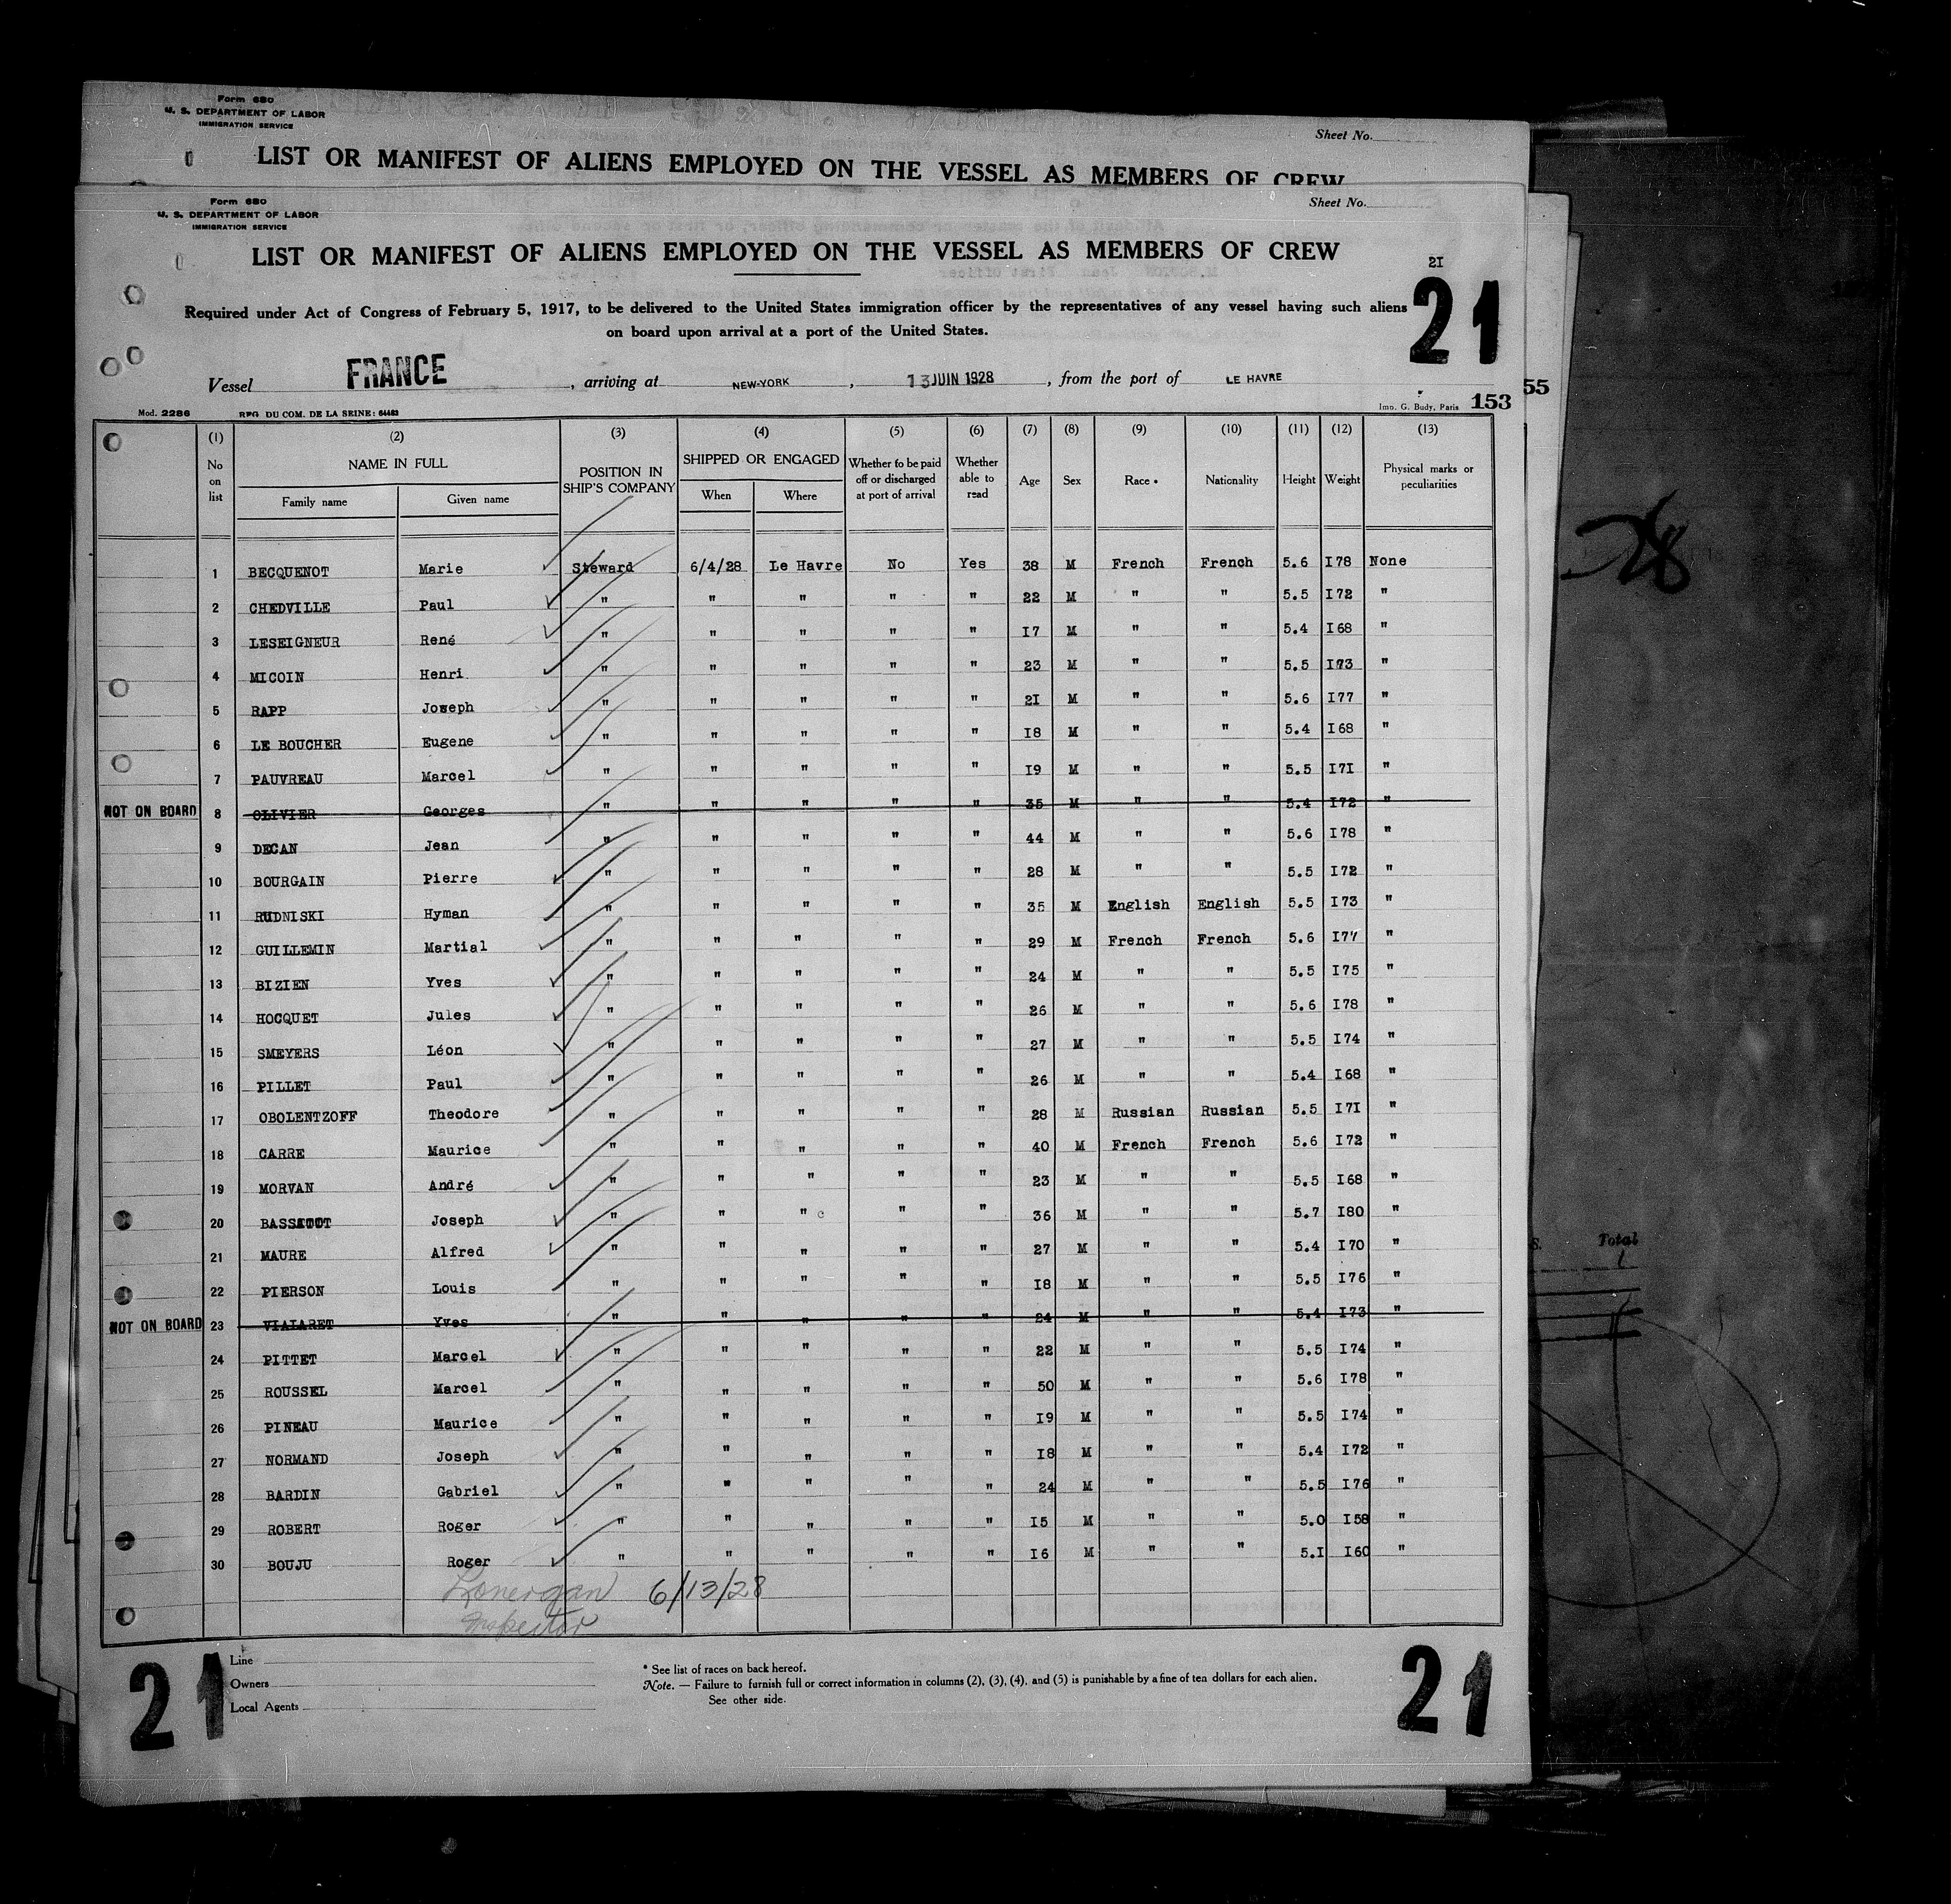 Form 680
U. S. DEPARTMENT OF LABOR
IMMIGRATION SERVICE
Sheet No.
LIST OR MANIFEST OF ALIENS EMPLOYED ON THE VESSEL AS MEMBERS OF CREW
Form 680
U. S. DEPARTMENT OF LABOR
IMMIGRATION SERVICE
Sheet No.
LIST OR MANIFEST OF ALIENS EMPLOYED ON THE VESSEL AS MEMBERS OF CREW
2I
21
Required under Act of Congress of February 5, 1917, to be delivered to the United States immigration officer by the representatives of any vessel having such aliens
on board upon arrival at a port of the United States.
Vessel FRANCE, arriving at NEW-YORK, 13 JUIN 1928, from the port of LE HAVRE
55
Mod. 2286 REG. DU COM. DE LA SEINE: 64483 Imp. G. Budy, Paris 153
(1) (2) (3) (4) (5) (6) (7) (8) (9) (10) (11) (12) (13)
No on list NAME IN FULL POSITION IN SHIP'S COMPANY SHIPPED OR ENGAGED Whether to be paid off or discharged at port of arrival Whether able to read Age Sex Race * Nationality Height Weight Physical marks or peculiarities
Family name Given name When Where
1 BECQUENOT Marie Steward 6/4/28 Le Havre No Yes 38 M French French 5.6 I78 None
2 CHEDVILLE Paul " " " " " 22 M " " 5.5 I72 "
3 LESEIGNEUR René " " " " " I7 M " " 5.4 I68 "
4 MICOIN Henri " " " " " 23 M " " 5.5 I73 "
5 RAPP Joseph " " " " " 2I M " " 5.6 I77 "
6 LE BOUCHER Eugene " " " " " I8 M " " 5.4 I68 "
7 PAUVREAU Marcel " " " " " I9 M " " 5.5 I7I "
NOT ON BOARD 8 OLIVIER Georges " " " " " 35 M " " 5.4 I72 "
9 DECAN Jean " " " " " 44 M " " 5.6 I78 "
10 BOURGAIN Pierre " " " " " 28 M " " 5.5 I72 "
11 RUDNISKI Hyman " " " " " 35 M English English 5.5 I73 "
12 GUILLEMIN Martial " " " " " 29 M French French 5.6 I77 "
13 BIZIEN Yves " " " " " 24 M " " 5.5 I75 "
14 HOCQUET Jules " " " " " 26 M " " 5.6 I78 "
15 SMEYERS Léon " " " " " 27 M " " 5.5 I74 "
16 PILLET Paul " " " " " 26 M " " 5.4 I68 "
17 OBOLENTZOFF Theodore " " " " " 28 M Russian Russian 5.5 I7I "
18 CARRE Maurice " " " " " 40 M French French 5.6 I72 "
19 MORVAN André " " " " " 23 M " " 5.5 I68 "
20 Joseph " " " " " 36 M " " 5.7 I80 "
21 MAURE Alfred " " " " " 27 M " " 5.4 I70 "
22 PIERSON Louis " " " " " I8 M " " 5.5 I76 "
NOT ON BOARD 23 VIALARET Yves " " " " " 24 M " " 5.4 I73 "
24 PITTET Marcel " " " " " 22 M " " 5.5 I74 "
25 ROUSSEL Marcel " " " " " 50 M " " 5.6 I78 "
26 PINEAU Maurice " " " " " I9 M " " 5.5 I74 "
27 NORMAND Joseph " " " " " I8 M " " 5.4 I72 "
28 BARDIN Gabriel " " " " " 24 M " " 5.5 I76 "
29 ROBERT Roger " " " " " I5 M " " 5.0 I58 "
30 BOUJU Roger " " " " " I6 M " " 5.I I60 "
Lonergan 6/13/28
Inspector
21
Line
Owners
Local Agents
* See list of races on back hereof.
Note. — Failure to furnish full or correct information in columns (2), (3), (4), and (5) is punishable by a fine of ten dollars for each alien.
See other side.
21
28
S. Total